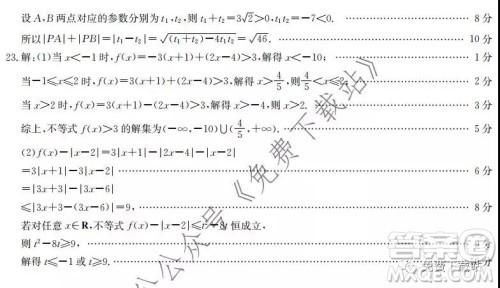 设A,B两点对应的参数分别为t₁,t₂,则t₁+t₂=3√2>0,t₁t₂=-7<0. 8分
所以|PA|+|PB|=|t₁-t₂|=√((t₁+t₂)²-4t₁t₂)=√46. 10分
23.解:(1)当x<-1时,f(x)=-3(x+1)+(2x-4)>3,解得x<-10; 1分
当-1≤x≤2时,f(x)=3(x+1)+(2x-4)>3,解得x>4/5,则4/5<x≤2; 2分
当x>2时,f(x)=3(x+1)-(2x-4)>3,解得x>-4,则x>2. 3分
综上,不等式f(x)>3的解集为(-∞,-10)∪(4/5,+∞). 5分
(2)f(x)-|x-2|=3|x+1|-|2x-4|-|x-2|
=3|x+1|-3|x-2| 6分
=|3x+3|-|3x-6|
≤|3x+3-(3x-6)|=9. 8分
若对任意x∈R,不等式f(x)-|x-2|≤t²-8t恒成立,
则t²-8t≥9, 分
解得t≤-1或t≥9.
公众号《免费下载站》
答案圈